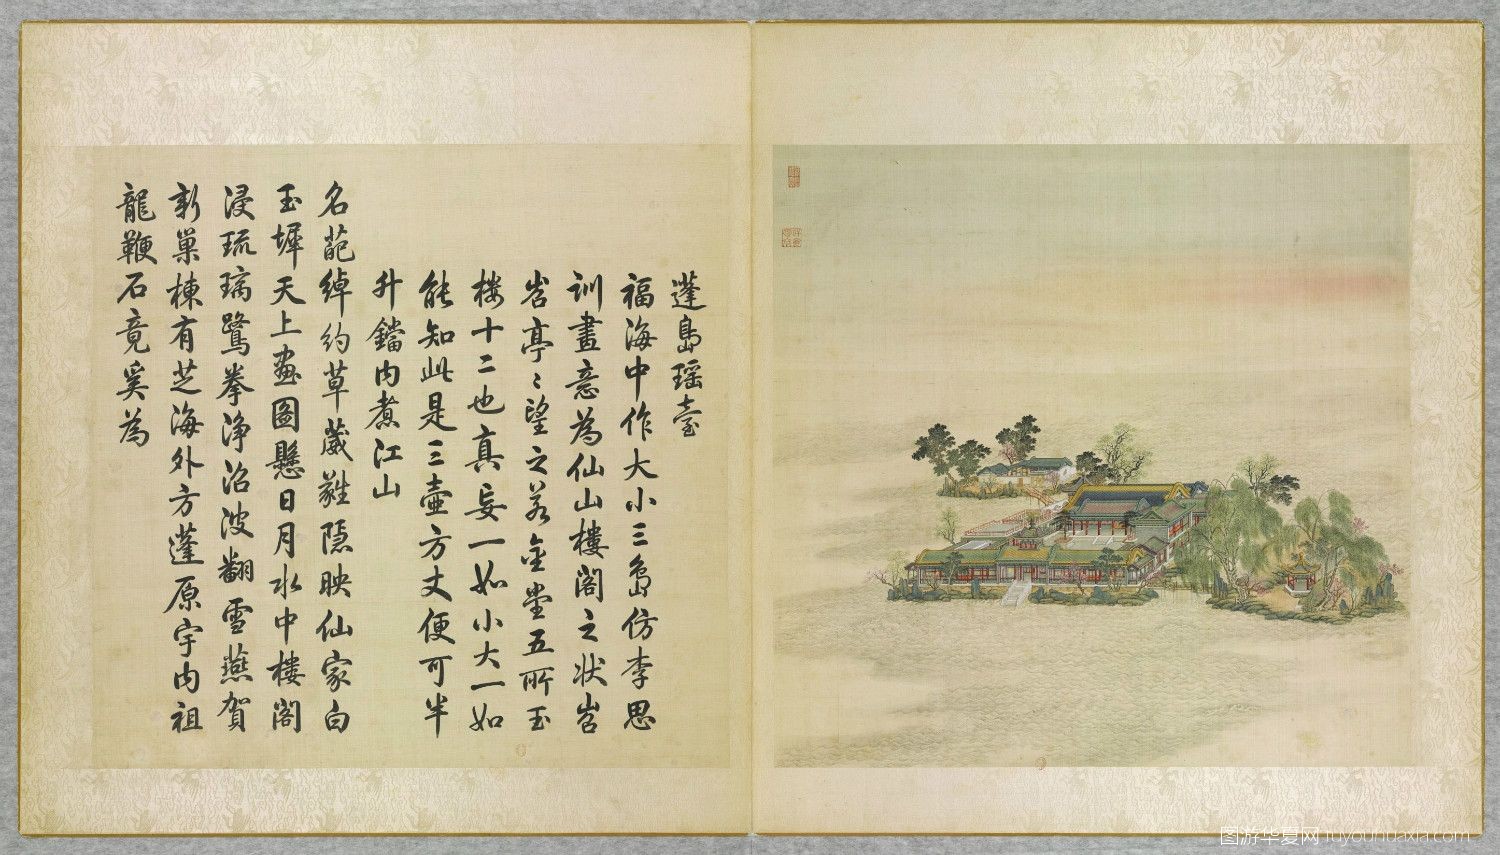 蓬島瑶臺
福海中作大小三島仿李思
訓畫意為仙山樓閣之状岧
岧亭々望之若金堂五所玉
楼十二也真妄一如小大一如
能知此是三壷方丈便可半
升鐺内煮江山
名葩綽約草葳蕤隱映仙家白
玉墀天上畫圖懸日月水中樓閣
浸琉璃鷺拳淨沼波翻雪燕賀
新巢棟有芝海外方蓬原宇内祖
龍鞭石竟奚為
图游华夏网 tuyouhuaxia.com